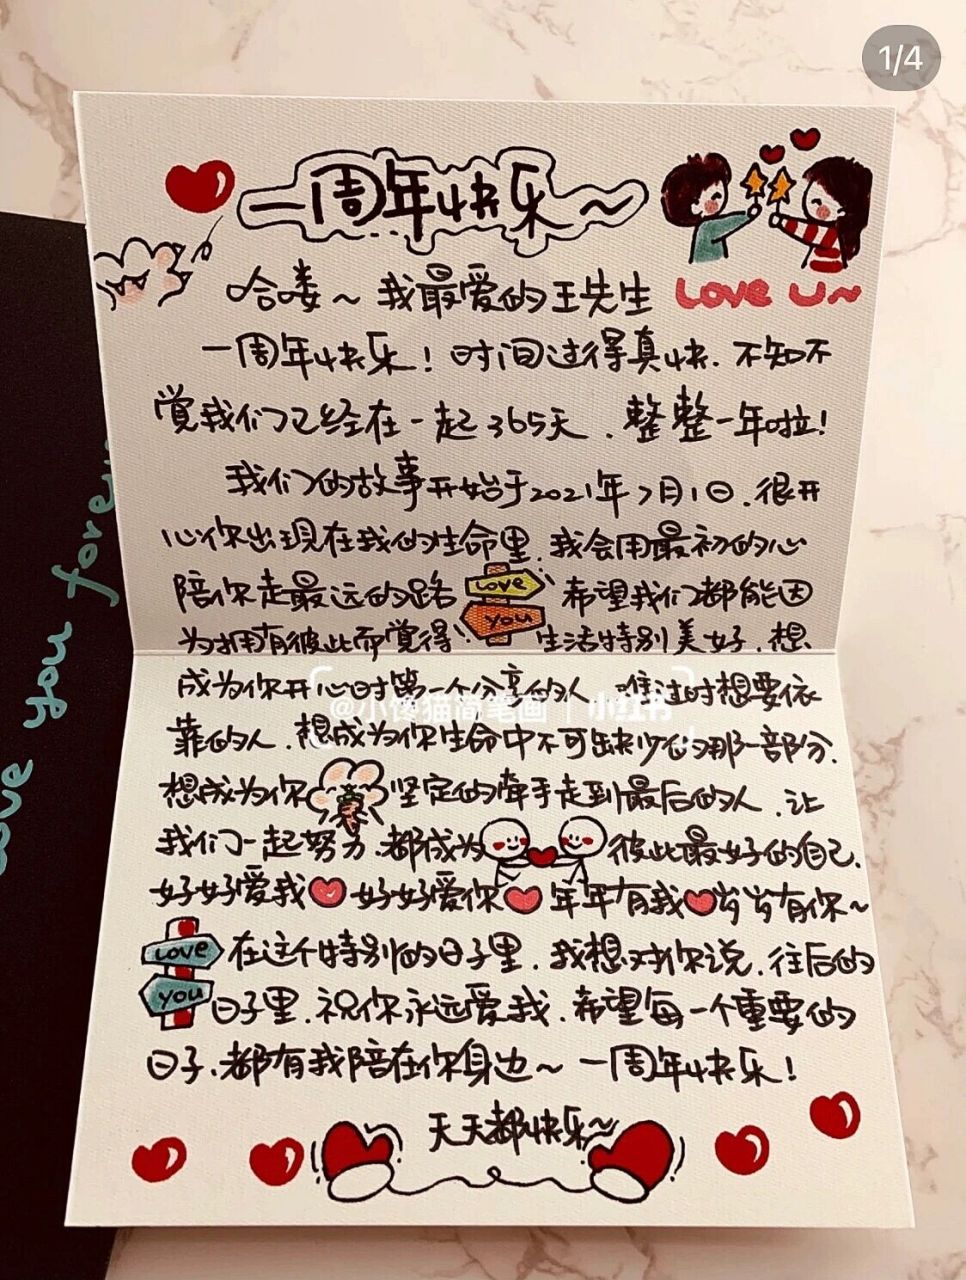 1/4
一周年快乐~
哈喽~我最爱的王先生
Love U~
一周年快乐！时间过得真快.不知不
觉我们已经在一起365天.整整一年啦!
我们的故事开始于2021年7月1日.很开
心你出现在我的生命里.我会用最初的心
陪你走最远的路 LOVE 希望我们都能因
为拥有彼此而觉得 YOU 生活特别美好.想
成为你开心时第一个分享的人 难过时想要依
@小馋猫简笔画 | 小红书
靠的人.想成为你生命中不可缺少的那一部分.
想成为你坚定的牵手走到最后的人.让
我们一起努力.都成为彼此最好的自己.
好好爱我 好好爱你 年年有我 岁岁有你~
LOVE 在这个特别的日子里.我想对你说.往后的
YOU 日子里.祝你永远爱我.希望每一个重要的
日子.都有我陪在你身边~一周年快乐!
天天都快乐~
Love you forev